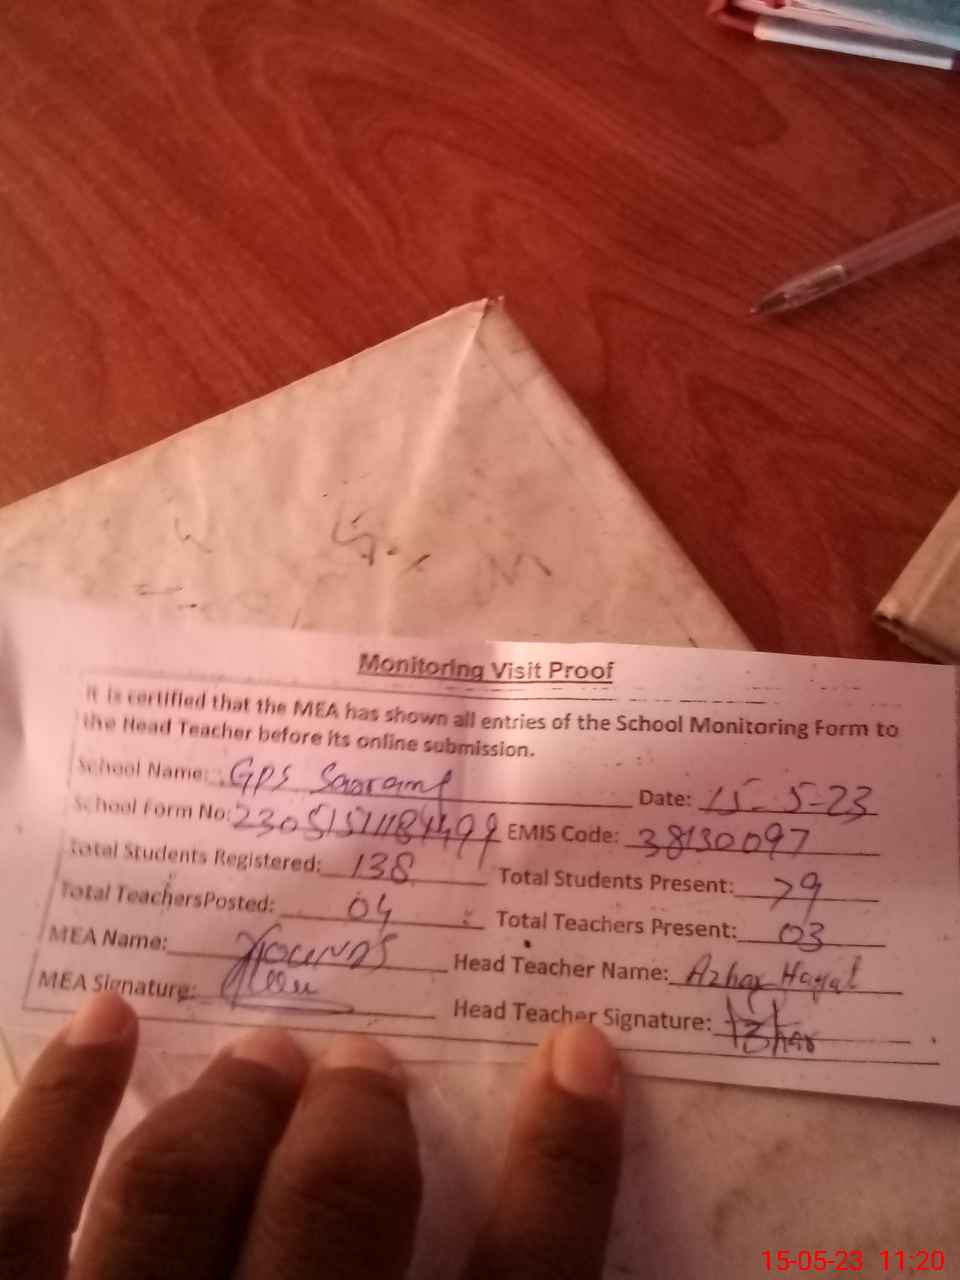 Monitoring Visit Proof
It is certified that the MEA has shown all entries of the School Monitoring Form to
the Head Teacher before its online submission.
School Name: GPS Date: 15-5-23
School Form No: EMIS Code: 38130097
Total Students Registered: 138 Total Students Present: 79
Total TeachersPosted: 04 Total Teachers Present: 03
MEA Name: Head Teacher Name: Azhar Hayat
MEA Signature: Head Teacher Signature: Azhar
15-05-23 11:20